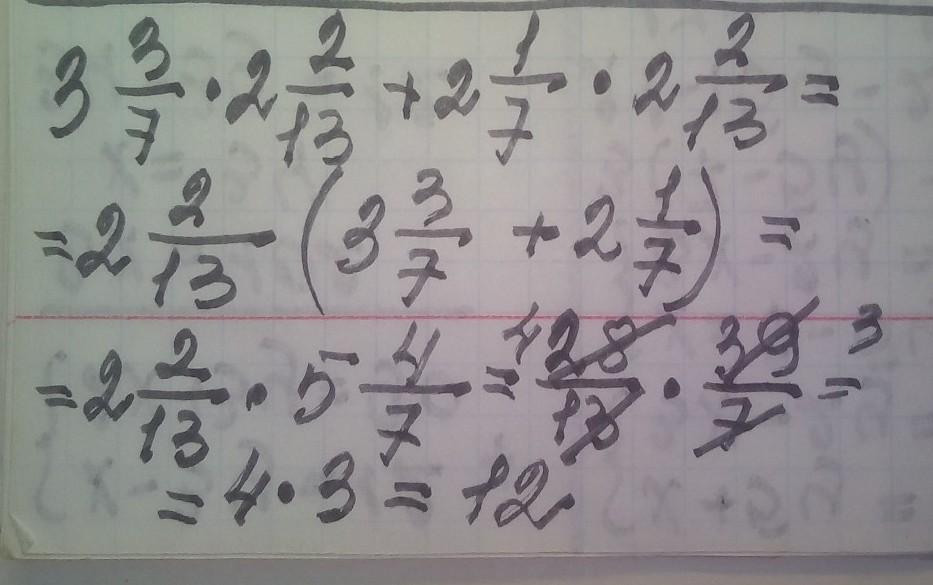 3 3/7 · 2 2/13 + 2 1/7 · 2 2/13 =
= 2 2/13 (3 3/7 + 2 1/7) =
= 2 2/13 · 5 4/7 = 4 28/13 · 39/7 3 =
= 4 · 3 = 12.